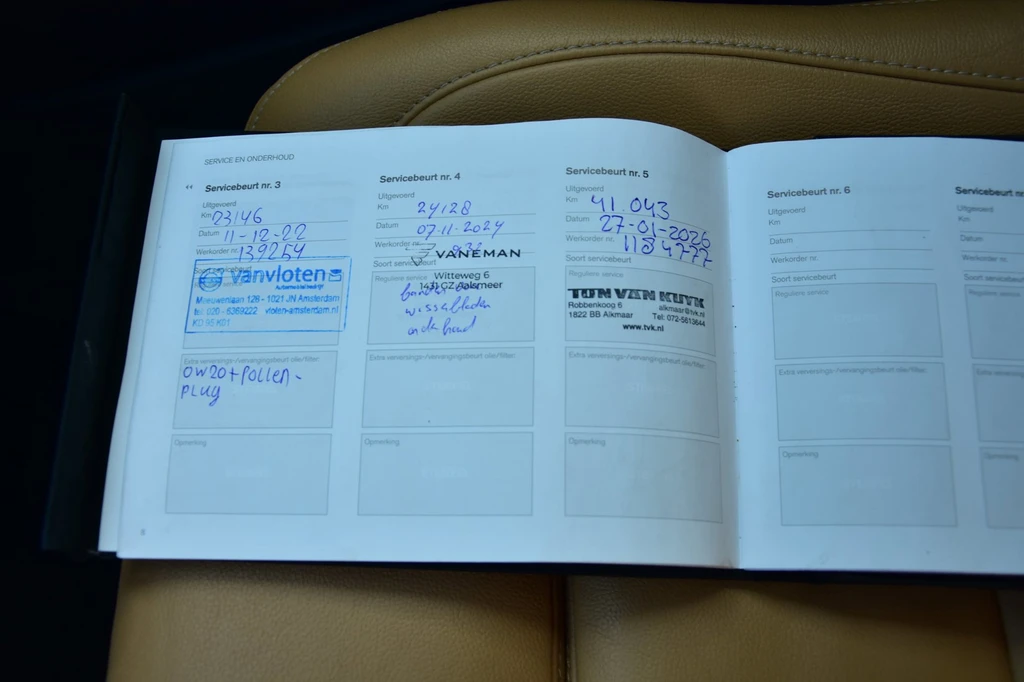 SERVICE EN ONDERHOUD
Servicebeurt nr. 3
Uitgevoerd
Km 23146
Datum 11-12-22
Werkorder nr. 139254
Soort servicebeurt
vanvloten
Meeuwenlaan 128 - 1021 JN Amsterdam
tel 020 - 6369222 vloten-amsterdam.nl
KD 95 K01
Extra verversings-/vervangingsbeurt olie/filter:
0W20 + Pollen -
PLUG
Opmerking
Servicebeurt nr. 4
Uitgevoerd
Km 24128
Datum 07-11-2024
Werkorder nr.
Soort servicebeurt
VANEMAN
Reguliere service
Witteweg 6
1431 GZ Aalsmeer
wisserbladen
onderhoud
Extra verversings-/vervangingsbeurt olie/filter:
Opmerking
Servicebeurt nr. 5
Uitgevoerd
Km 41.043
Datum 27-01-2026
Werkorder nr. 1184777
Soort servicebeurt
Reguliere service
TON VAN KUYK
Robbenkoog 6 alkmaar@tvk.nl
1822 BB Alkmaar Tel: 072-5613644
www.tvk.nl
Extra verversings-/vervangingsbeurt olie/filter:
Opmerking
Servicebeurt nr. 6
Uitgevoerd
Km
Datum
Werkorder nr.
Soort servicebeurt
Reguliere service
Extra verversings-/vervangingsbeurt olie/filter:
Opmerking
Servicebeurt nr
Uitgevoerd
Km
Datum
Werkorder nr.
Soort servicebeurt
Reguliere service
Extra verversings
Opmerking